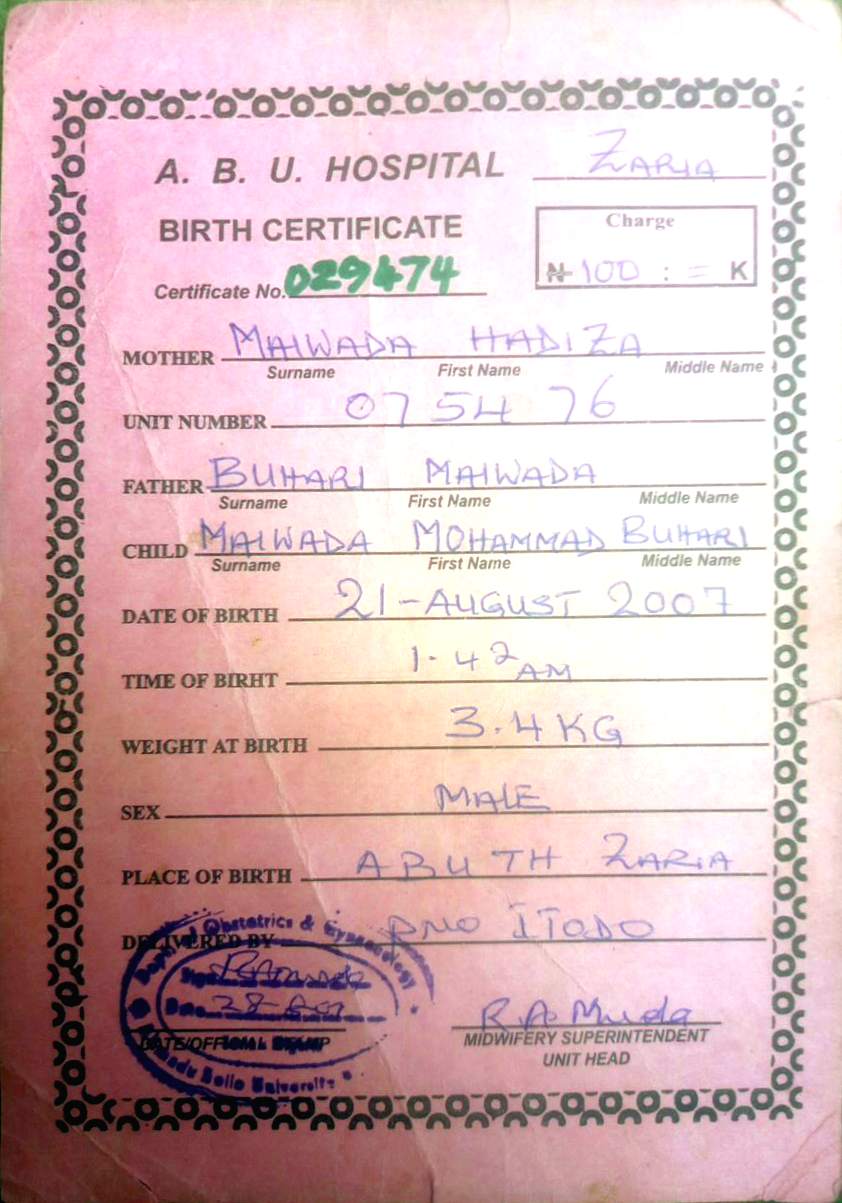 A. B. U. HOSPITAL ZARIA
BIRTH CERTIFICATE
Charge
Certificate No. 029474
₦ 100 : = K
MOTHER MAIWADA HADIZA
Surname First Name Middle Name
UNIT NUMBER 07 54 76
FATHER BUHARI MAIWADA
Surname First Name Middle Name
CHILD MAIWADA MOHAMMAD BUHARI
Surname First Name Middle Name
DATE OF BIRTH 21-AUGUST 2007
TIME OF BIRHT 1.42 AM
WEIGHT AT BIRTH 3.4 KG
SEX MALE
PLACE OF BIRTH ABUTH ZARIA
DELIVERED BY PNO ITODO
Obstetrics & Gynaecology
Sign
Date
R.A Muda
DATE/OFFICIAL STAMP
MIDWIFERY SUPERINTENDENT
UNIT HEAD
Ahmadu Bello University